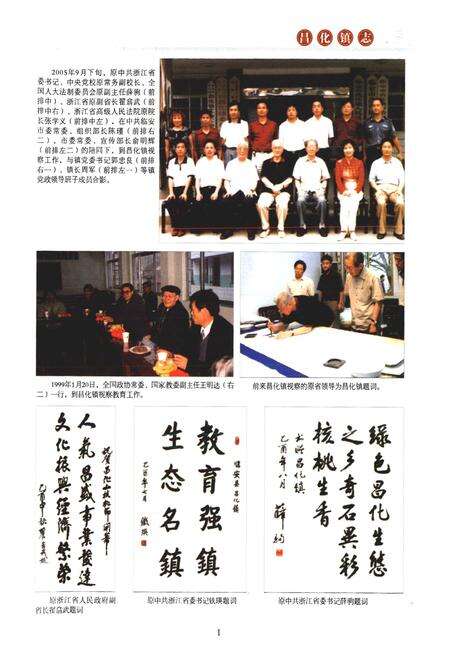 昌化镇志
2005年9月下旬，原中共浙江省
委书记、中央党校原常务副校长、全
国人大法制委员会原副主任薛驹（前
排中）、浙江省原副省长翟翕武（前
排中右）、浙江省高级人民法院原院
长张学义（前排中左），在中共临安
市委常委、组织部长陈瑾（前排右
二）、市委常委、宣传部长俞明辉
（前排左二）的陪同下，到昌化镇视
察工作，与镇党委书记郭忠良（前排
右一）、镇长周军（前排左一）等镇
党政领导班子成员合影。
1999年1月20日，全国政协常委、国家教委副主任王明达（右
二）一行，到昌化镇视察教育工作。
前来昌化镇视察的原省领导为昌化镇题词。
人气昌盛事业发达
文化振兴经济繁荣
教育强镇
生态名镇
乙酉年七月
铁瑛
绿色昌化生态
之乡奇石异彩
核桃生香
乙酉年八月
薛驹
原浙江省人民政府副
省长翟翕武题词
原中共浙江省委书记铁瑛题词
原中共浙江省委书记薛驹题词
1